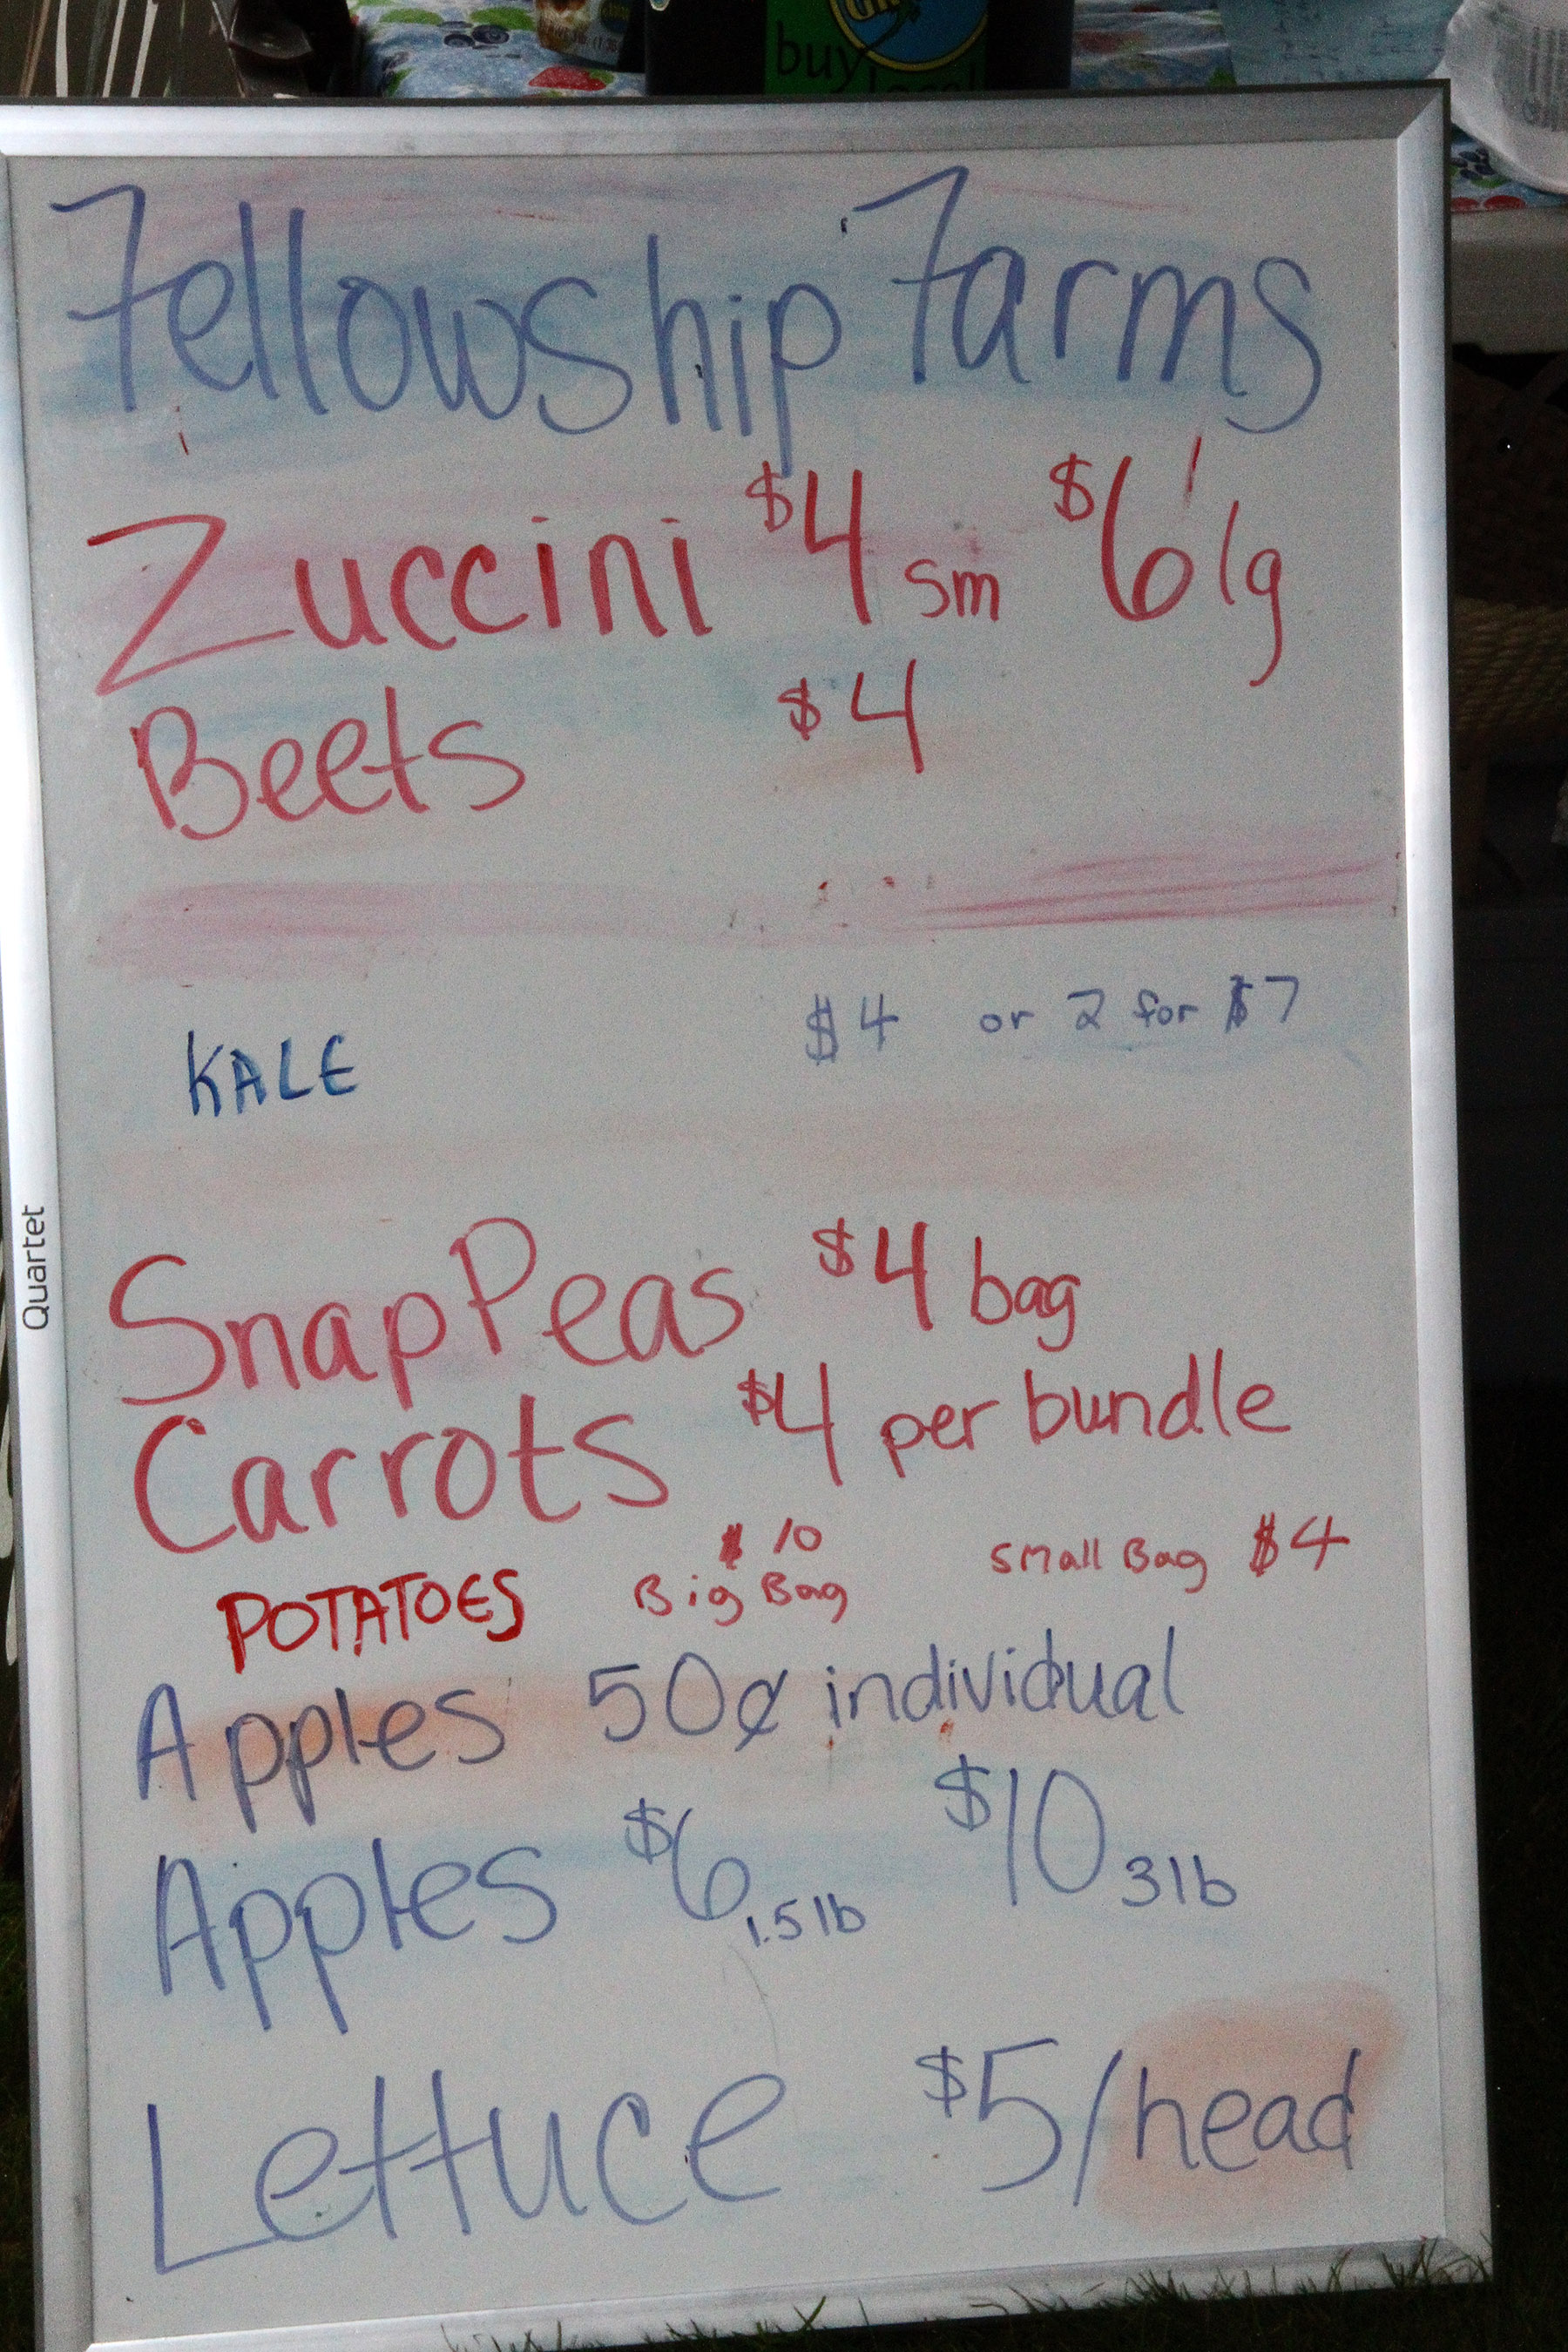 buy
local
Fellowship Farms
Zuccini $4 sm $6 lg
Beets $4
KALE $4 or 2 for $7
Snap Peas $4 bag
Carrots $4 per bundle
POTATOES $10 Big Bag small Bag $4
Apples 50¢ individual
Apples $6 1.5 lb $10 3 lb
Lettuce $5/head
Quartet